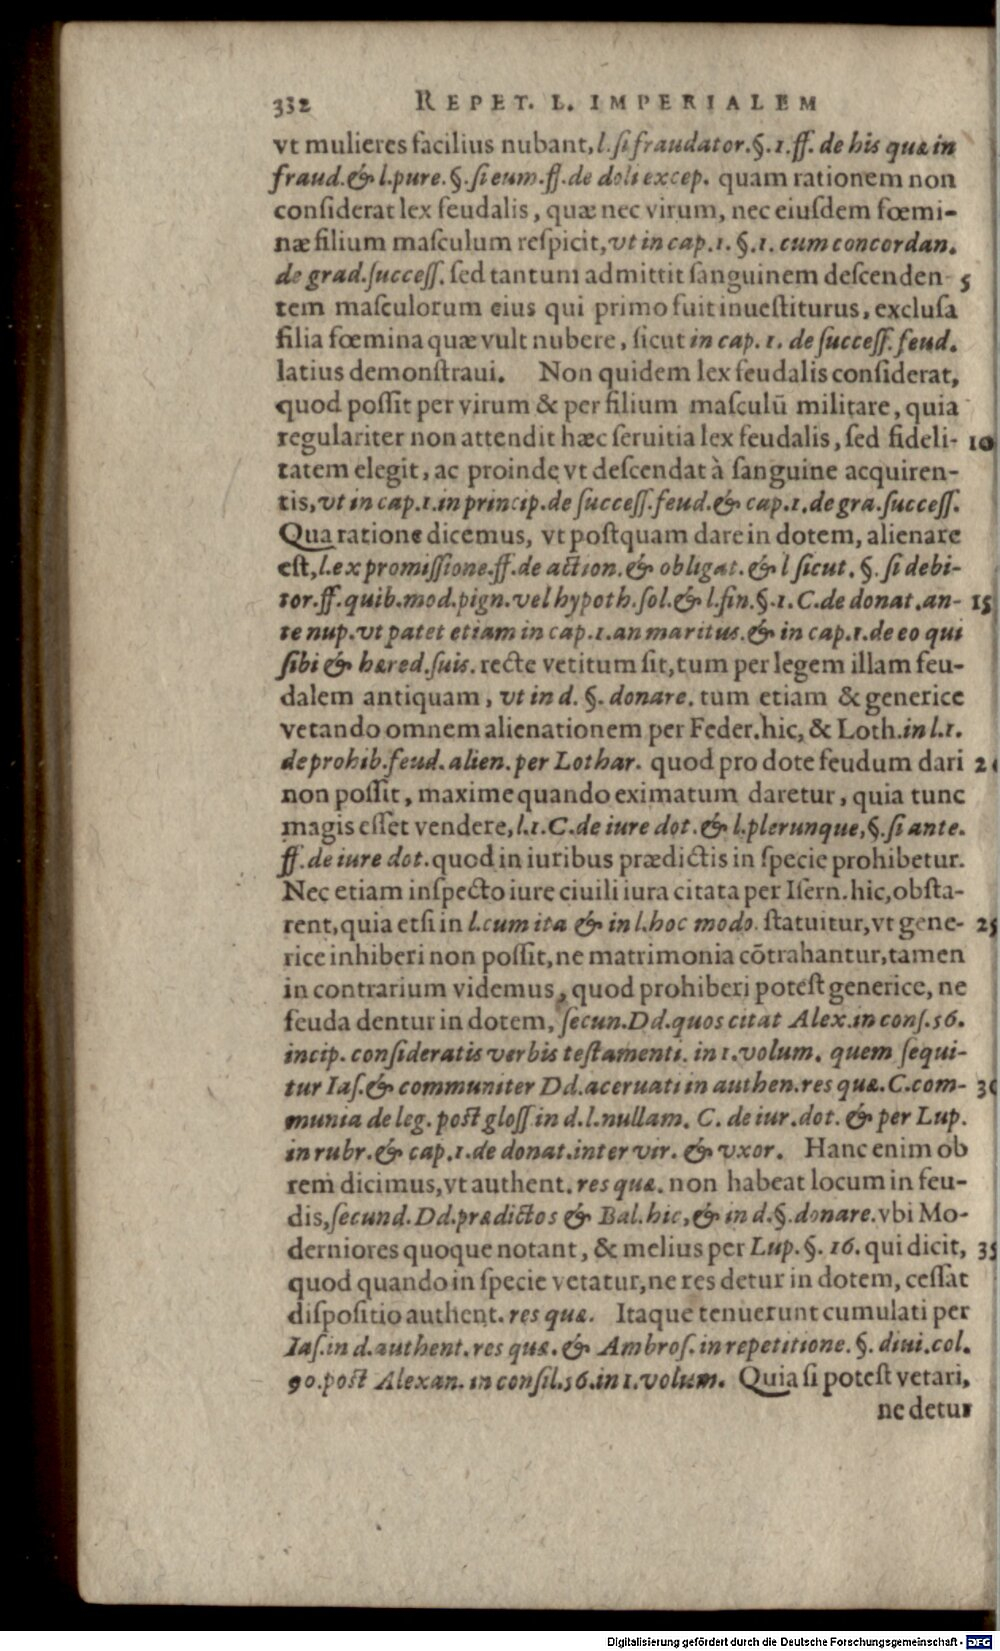 332 REPET. L. IMPERIALEM
vt mulieres facilius nubant, l. si fraudator. §. 1. ff. de his quæ in
fraud. & l. pure. §. si eum. ff. de doli excep. quam rationem non
considerat lex feudalis, quæ nec virum, nec eiusdem fœmi-
næ filium masculum respicit, vt in cap. 1. §. 1. cum concordan.
de grad. success. sed tantum admittit sanguinem descenden- 5
tem masculorum eius qui primo fuit inuestiturus, exclusa
filia fœmina quæ vult nubere, sicut in cap. 1. de success. feud.
latius demonstraui. Non quidem lex feudalis considerat,
quod possit per virum & per filium masculū militare, quia
regulariter non attendit hæc seruitia lex feudalis, sed fideli- 10
tatem elegit, ac proinde vt descendat à sanguine acquiren-
tis, vt in cap. 1. in princip. de success. feud. & cap. 1. de gra. success.
Qua ratione dicemus, vt postquam dare in dotem, alienare
est, l. ex promissione. ff. de action. & obligat. & l sicut. §. si debi-
tor. ff. quib. mod. pign. vel hypoth. sol. & l. fin. §. 1. C. de donat. an- 15
te nup. vt patet etiam in cap. 1. an maritus. & in cap. 1. de eo qui
sibi & hæred. suis. recte vetitum sit, tum per legem illam feu-
dalem antiquam, vt in d. §. donare. tum etiam & generice
vetando omnem alienationem per Feder. hic, & Loth. in l. 1.
de prohib. feud. alien. per Lothar. quod pro dote feudum dari 2
non possit, maxime quando eximatum daretur, quia tunc
magis esset vendere, l. 1. C. de iure dot. & l. plerunque, §. si ante.
ff. de iure dot. quod in iuribus prædictis in specie prohibetur.
Nec etiam inspecto iure ciuili iura citata per Isern. hic, obsta-
rent, quia etsi in l. cum ita & in l. hoc modo. statuitur, vt gene- 25
rice inhiberi non possit, ne matrimonia cōtrahantur, tamen
in contrarium videmus, quod prohiberi potest generice, ne
feuda dentur in dotem, secun. Dd. quos citat Alex. in cons. 56.
incip. consideratis verbis testamenti. in 1. volum. quem sequi-
tur Ias. & communiter Dd. aceruati in authen. res quæ. C. com- 30
munia de leg. post gloss. in d. l. nullam. C. de iur. dot. & per Lup.
in rubr. & cap. 1. de donat. inter vir. & vxor. Hanc enim ob
rem dicimus, vt authent. res quæ. non habeat locum in feu-
dis, secund. Dd. prædictos & Bal. hic, & in d. §. donare. vbi Mo-
derniores quoque notant, & melius per Lup. §. 16. qui dicit, 35
quod quando in specie vetatur, ne res detur in dotem, cessat
dispositio authent. res quæ. Itaque tenuerunt cumulati per
Ias. in d. authent. res quæ. & Ambros. in repetitione. §. diui. col.
90. post Alexan. in consil. 56. in 1. volum. Quia si potest vetari,
ne detur
Digitalisierung gefördert durch die Deutsche Forschungsgemeinschaft - DFG